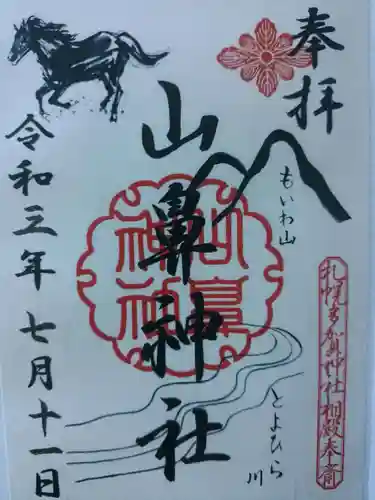 奉拝
もいわ山
札幌多賀神社相殿奉斎
とよひら川
山鼻神社
山鼻神社
令和三年七月十一日